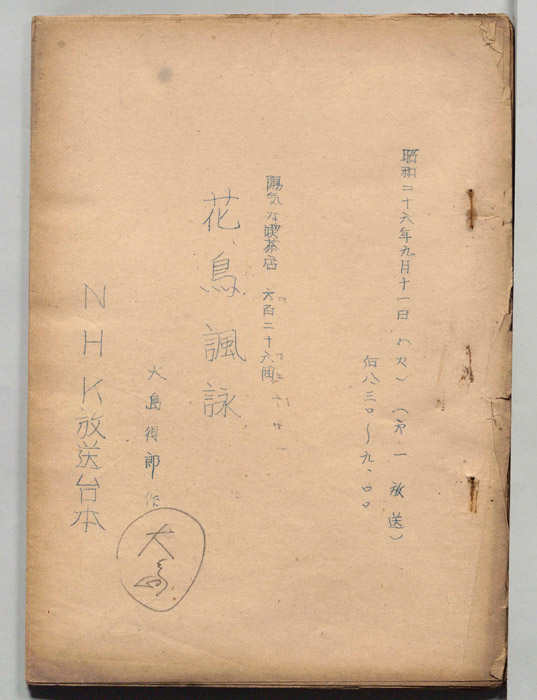 昭和二十六年九月十一日(火)(第一放送)
后八.三〇〜九.〇〇
陽気な喫茶店 六百二十六回
花鳥諷詠
大島得郎作
大島
NHK放送台本